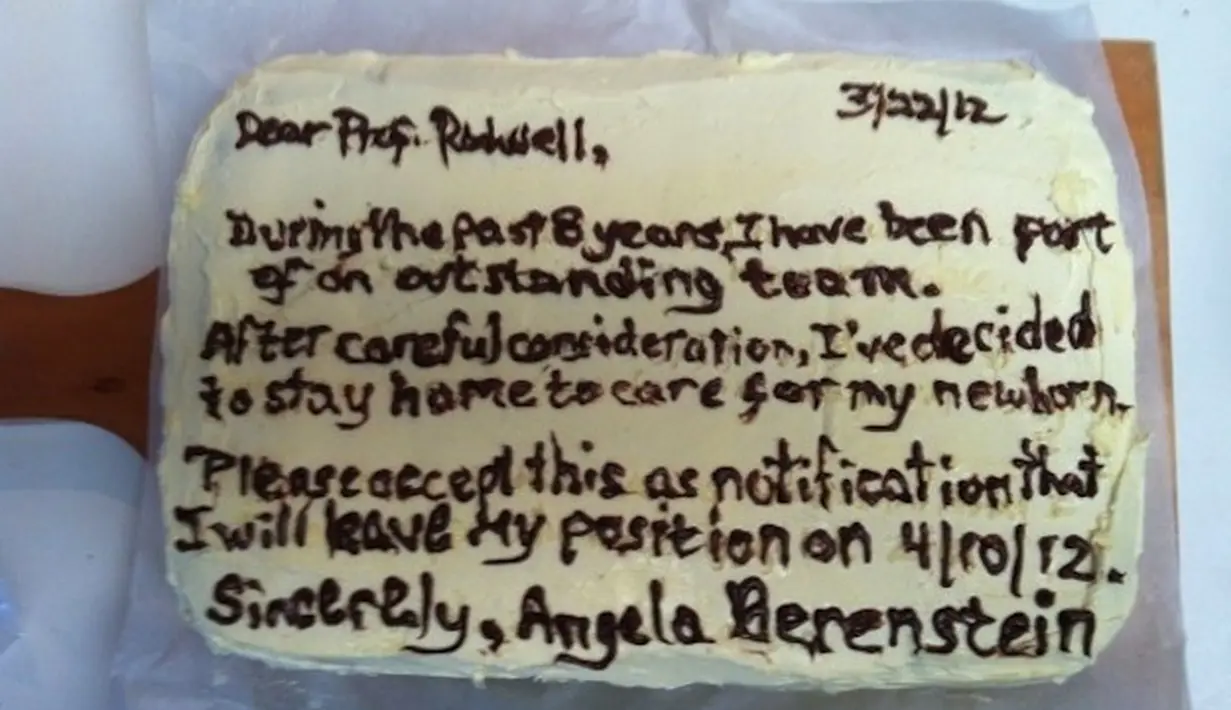 3/22/12
Dear Prof. Rockwell,
During the past 8 years, I have been part
of an outstanding team.
After careful consideration, I've decided
to stay home to care for my newborn.
Please accept this as notification that
I will leave my position on 4/10/12.
Sincerely, Angela Berenstein